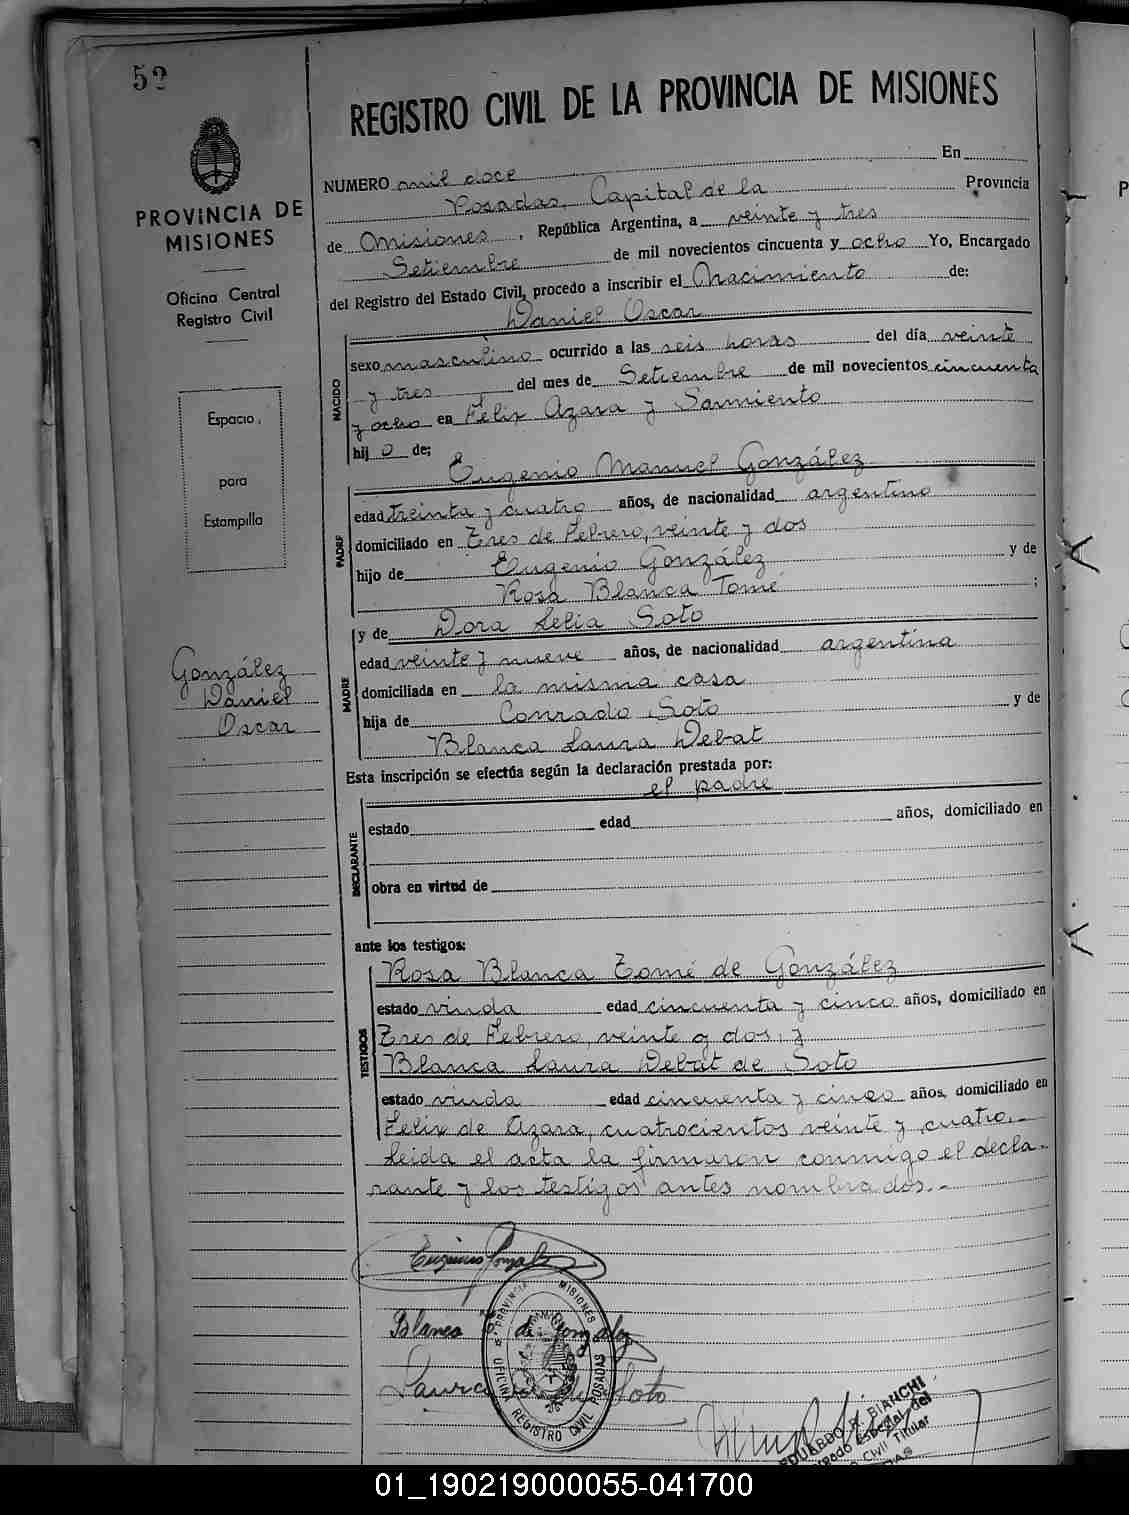 52
REGISTRO CIVIL DE LA PROVINCIA DE MISIONES
PROVINCIA DE
MISIONES
Oficina Central
Registro Civil
Espacio
para
Estampilla
González
Daniel
Oscar
NUMERO mil doce En
Posadas, Capital de la Provincia
de Misiones, República Argentina, a veinte y tres
Setiembre de mil novecientos cincuenta y ocho Yo, Encargado
del Registro del Estado Civil, procedo a inscribir el Nacimiento de:
Daniel Oscar
NACIDO
sexo masculino ocurrido a las seis horas del día veinte
y tres del mes de Setiembre de mil novecientos cincuenta
y ocho en Félix Azara y Sarmiento
hij o de:
Eugenio Manuel González
PADRE
edad treinta y cuatro años, de nacionalidad argentino
domiciliado en Tres de Febrero, veinte y dos
hijo de Eugenio González y de
Rosa Blanca Tomé ;
y de Dora Lelia Soto
MADRE
edad veinte y nueve años, de nacionalidad argentina
domiciliada en la misma casa
hija de Conrado Soto y de
Blanca Laura Debat
Esta inscripción se efectúa según la declaración prestada por:
el padre
DECLARANTE
estado edad años, domiciliado en
obra en virtud de
ante los testigos:
TESTIGOS
Rosa Blanca Tomé de González
estado viuda edad cincuenta y cinco años, domiciliado en
Tres de Febrero, veinte y dos, y
Blanca Laura Debat de Soto
estado viuda edad cincuenta y cinco años, domiciliado en
Felix de Azara, cuatrocientos veinte y cuatro.-
Leida el acta la firmaron conmigo el decla-
rante y los testigos antes nombrados.-
Eugenio González
Blanca de González
Laura Soto
PROVINCIA MISIONES
OFICINA REGISTRO CIVIL POSADAS
EDUARDO R. BIANCHI
Especial del
Civil Titular
01_190219000055-041700